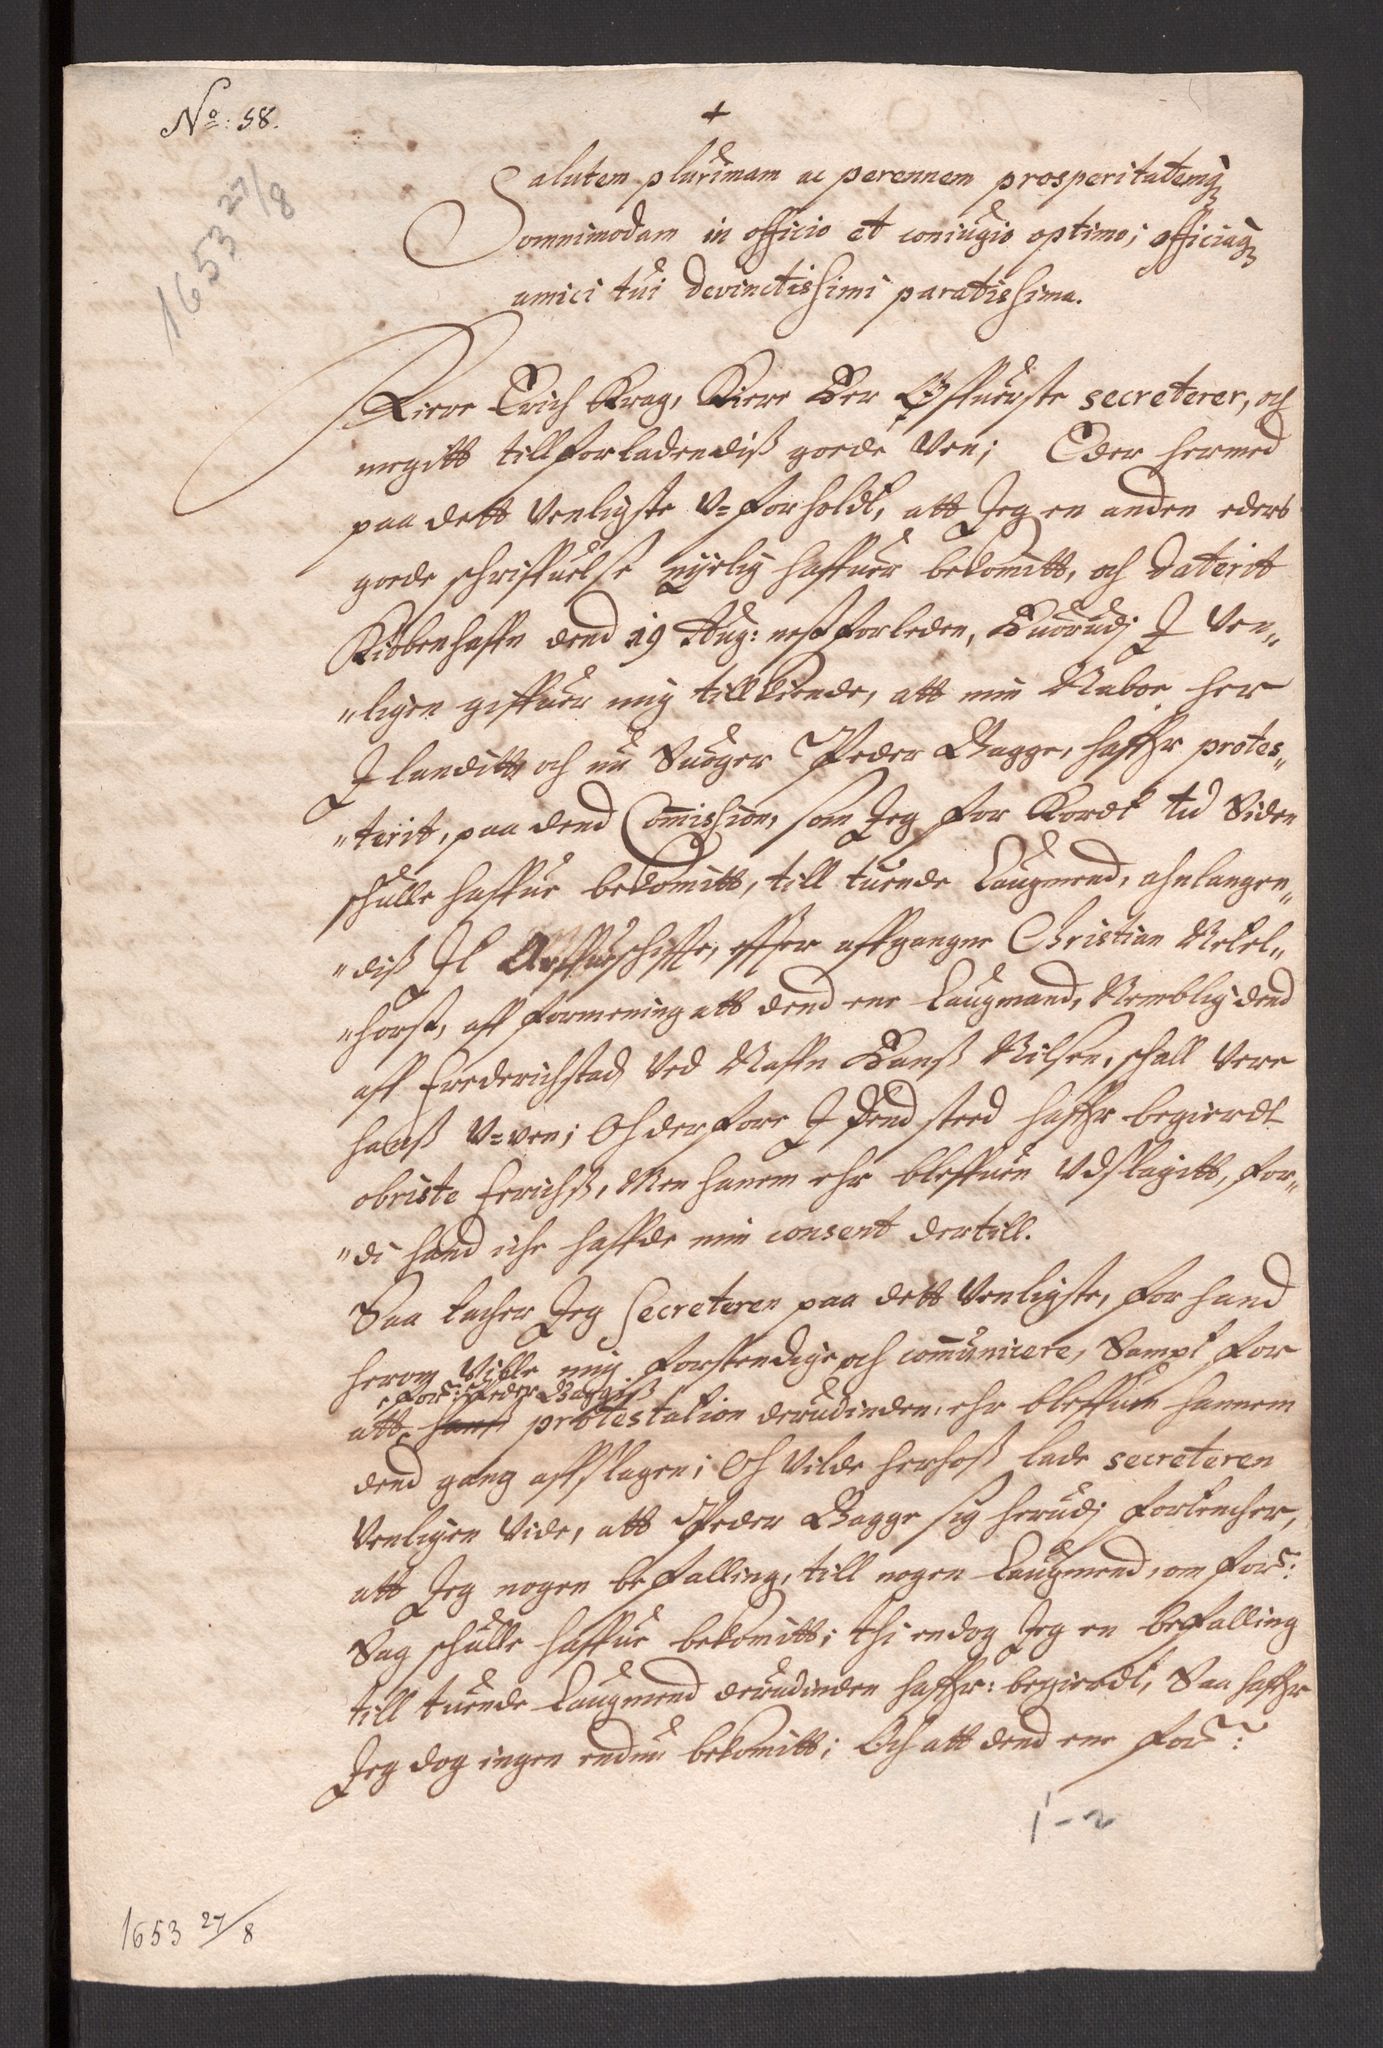 No: 58.
+
1653 27/8
Salutem plurimam ac perennem prosperitatemq;
omnimodam in officio et coniugio optimo; officiaq;
amici tui devinctissimi paratissima.
Kiere Erich Krag, Kiere Her Øffuerste secreterer, och
megitt tillforladendiß goede Ven; Eder hermed
paa dett venligste v=forholdt, att Jeg en anden eders
goede schriffuelse nyelig haffuer bekomitt, och daterit
Kiøbenhaffn dend 19 Aug: nest forleden, Huorudj I ven„
„ligen giffuer mig tillkiende, att min Naboe her
I landitt och nu Suoger Peder Bagge, haffr protes„
„terit, paa dend Comission, som Jeg for kordt tid siden
schulle haffue bekomitt, till tuende Laugmend, ahnlangen„
„diß It Arffueschiffte, effter affgangne Christian Nekel„
„horst, aff formening att dend ene Laugmand, Nemblig dend
aff Frederichstad ved Naffn Hanß Nilsen, schall vere
hanß v=ven; Och derfore I dend sted haffr begierdt
obriste Frichß, Men hanem ehr bleffuen Udslagitt, for„
„di hand iche haffde min consent dertill.
Saa tacher Jeg Secreteren paa dett venligste, for hand
herom ville mig forstendige och communicere, Sampt for
for:ne Peder Baggiß
att hanß protestation derudinden, ehr bleffuen hannem
dend gang affslagen; Och vilde herhoß lade secreteren
venligen vide, att Peder Bagge sig herudj fortencher,
att Jeg nogen befalling, till nogen Laugmend, om for:ne
Sag schulle haffue bekomitt; thi endog Jeg en befalling
till tuende Laugmend derudinden haffr: begierdt, Saa haffr
Jeg dog ingen endnu bekomitt; Och att dend ene for:ne
1-2
1653 27/8